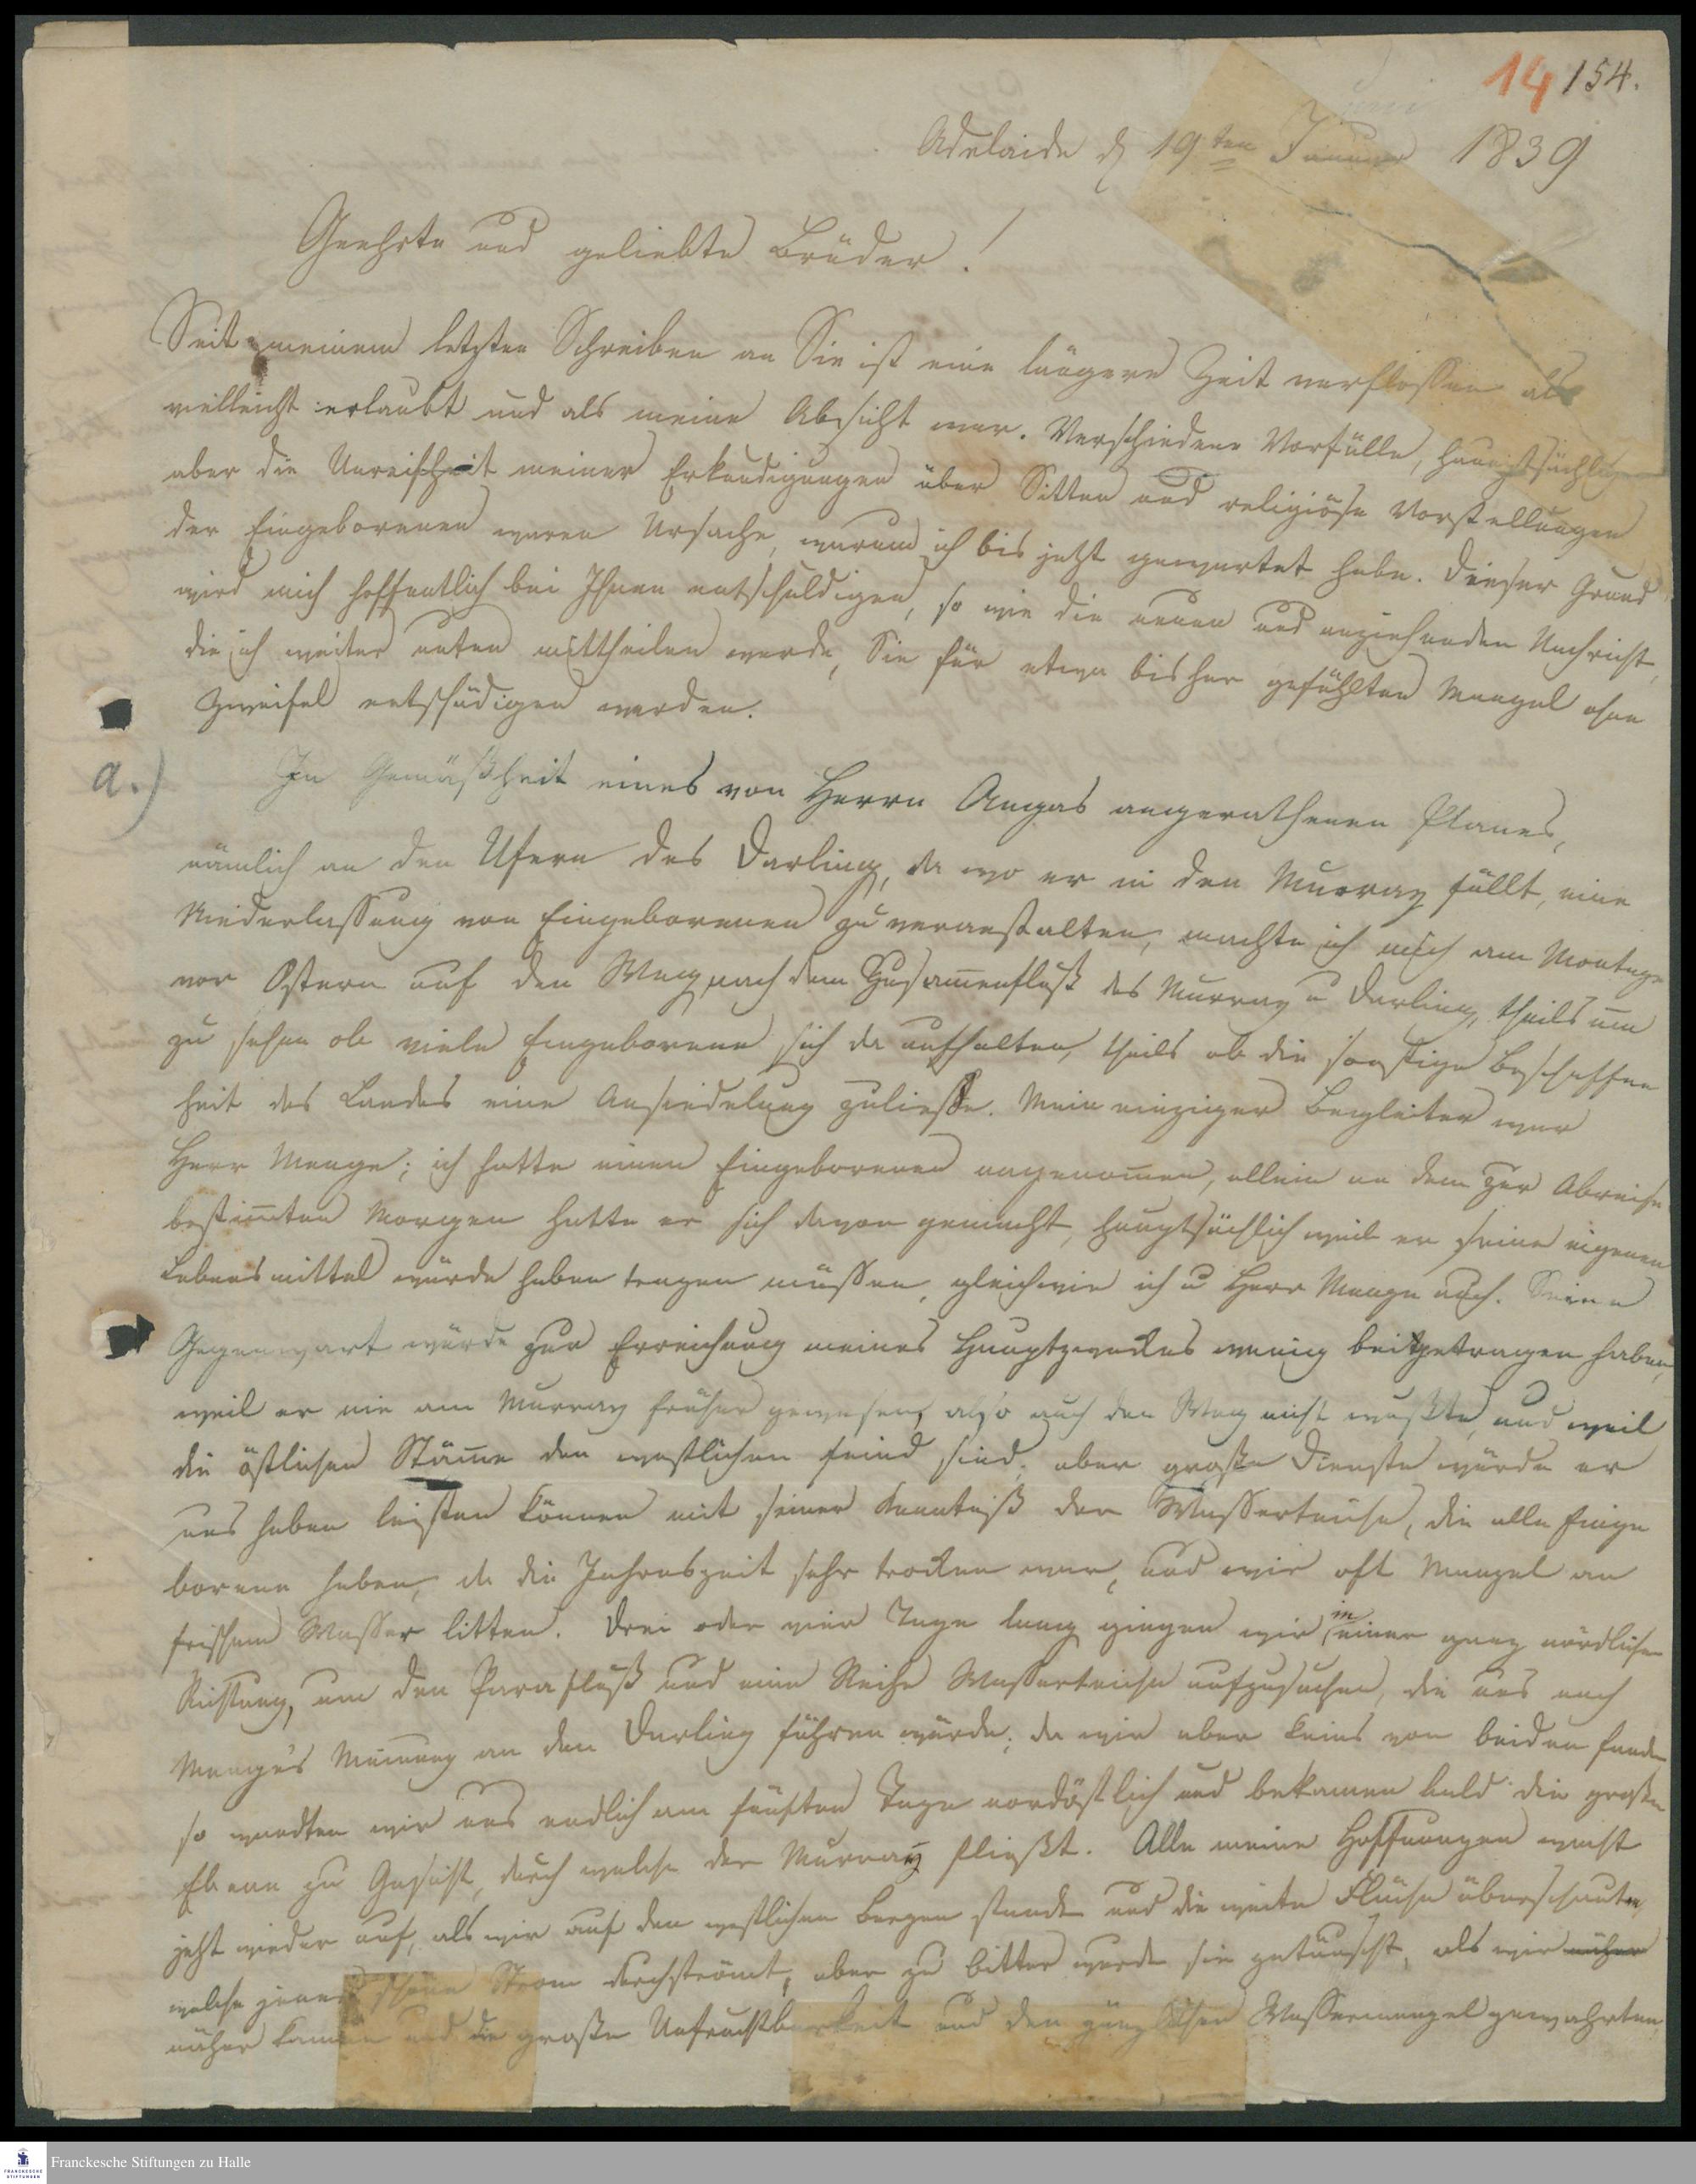 14 154.
Adelaide d 19ten 1839
Geehrte und geliebte Brüder!
Seit meinem letzten Schreiben an Sie ist eine längere Zeit verflossen als
vielleicht erlaubt und als meine Absicht war. Verschiedene Vorfälle, hauptsächlich
aber die Unreifheit meiner Erkundigungen über Sitten und religiöse Vorstellungen
der Eingeborenen waren Ursache, warum ich bis jetzt gewartet habe. Dieser Grund
wird mich hoffentlich bei Ihnen entschuldigen, so wie die neuen und anziehenden Nachricht,
die ich weiter unten mittheilen werde, Sie für etwa bisher gefühlten Mangel ohne
Zweifel entschädigen werden.
a.) In Gemäßheit eines von Herrn Angas angerathenen Planes,
nämlich an den Ufern des Darling, da wo er in den Murray fällt, eine
Niederlassung von Eingeborenen zu veranstalten, machte ich mich am Montage
vor Ostern auf den Weg nach dem Zusam̅enfluß des Murray u Darling, theils um
zu sehen ob viele Eingeborene sich da aufhalten, theils ob die sonstige Beschaffen
heit des Landes eine Ansiedelung zuließe. Mein einziger Begleiter war
Herr Menge; ich hatte einen Eingeborenen angenom̅en, allein an dem zur Abreise
bestim̅ten Morgen hatte er sich davon gemacht, hauptsächlich weil er seine eigenen
Lebensmittel würde haben tragen müssen, gleichwie ich u Herr Menge auch. Seine
Gegenwart würde zur Erreichung meines Hauptzweckes wenig beigetragen haben,
weil er nie am Murray früher gewesen, also auch den Weg nicht wußte, und weil
die östlichen Stäm̅e den westlichen feind sind; aber große Dienste würde er
uns haben leisten können mit seiner Kenntniß der Wasserteiche, die alle Einge
borene haben, da die Jahreszeit sehr trocken war, und wir oft Mangel an
frischem Wasser litten. Drei oder vier Tage lang gingen wir in einer ganz nördlichen
Richtung, um den Parafluß und eine Reihe Wasserteiche aufzusuchen, die uns nach
Menge's Meinung an den Darling führen würde; da wir aber keins von beiden fanden
so wandten wir uns endlich am fünften Tage nordöstlich und bekamen bald die große
Ebene zu Gesicht, durch welche der Murray fließt. Alle meine Hoffnungen
jetzt wieder auf, als wir auf den westlichen Bergen standen und die weite Fläche überschauten,
welche jener schöne Strom durchströmt, aber zu bitter wurde sie getäuscht, als wir näher
näher kamen und die große Unfruchtbarkeit und den gänzlichen Wassermangel gewahrten,
FRANCKESCHE STIFTUNGEN
Franckesche Stiftungen zu Halle